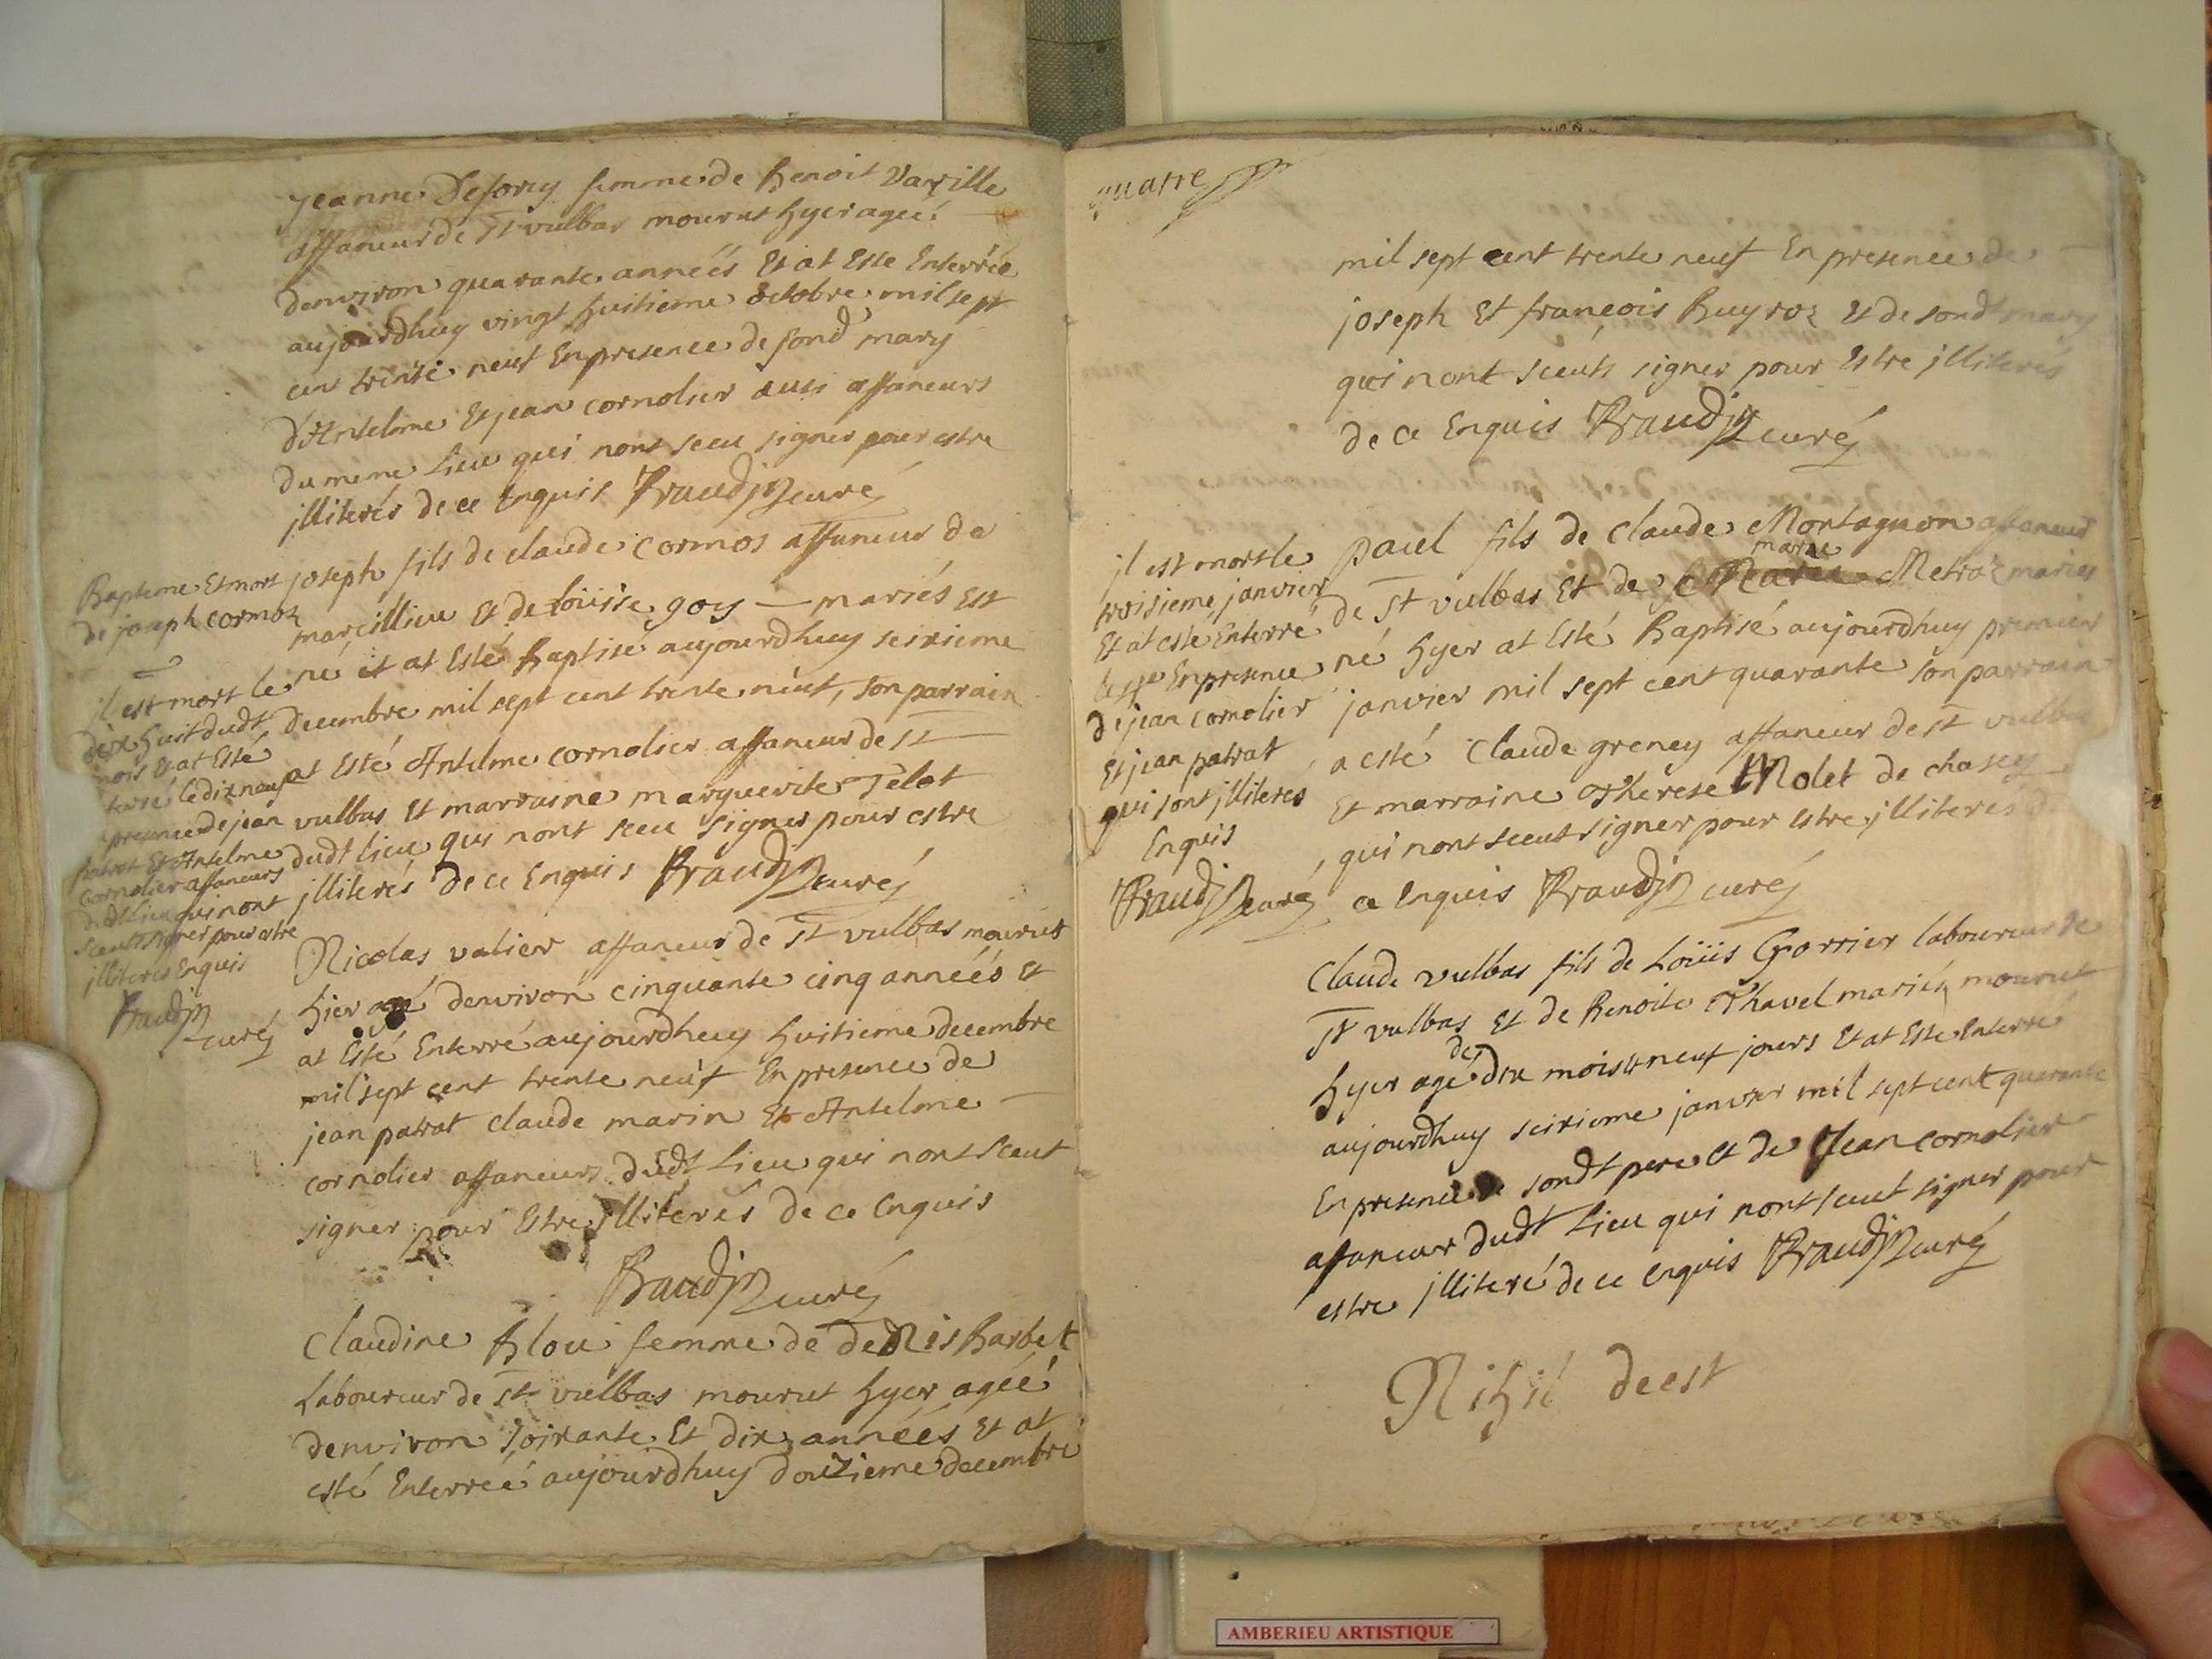 jeanne Deforey femme de benoit Varille
affaneur de St vulbas mourut hyer ageé
denviron quarante anneés Et at Este Enterrée
aujourdhuy vingt huitieme octobre mil sept
cent trente neuf En presence de sond mary
d'Antelme Et jean cornolier ausi affaneurs
du meme lieu qui nont sceu signer pour estre
jlliterés de ce Enquis Braudin curé
Bapteme Et mort
de joseph cormoz
il est mort le
dix huit dudt
mois Et at Esté
terré le dix neuf
presence de jean
patrat Et Antelme
cornolier affaneurs
dudt lieu qui nont
sceut signer pour estre
jlliteres Enquis
Braudin
curé
joseph fils de claude cormos affaneur de
marcillieu et de loüise goy mariés est
né et at Esté baptisé aujourdhuy seixieme
decembre mil sept cent trente neuf, son parrain
at Esté Antelme cornolier affaneur de St
vulbas et marraine marguerite Telot
dudt lieu qui nont sceu signer pour estre
jlliterés de ce Enquis Braudin curé
Nicolas valier affaneur de St vulbas mourut
hier agé denviron cinquante cinq anneés et
at Esté Enterré aujourdhuy huitieme decembre
mil sept cent trente neuf En presence de
jean patrat claude marin Et Antelme
cornolier affaneurs dudt lieu qui nont sceut
signer pour Estre jlliterés de ce Enquis
Braudin curé
Claudine blou femme de deNis barbet
laboureur de St vulbas mourut hyer ageé
denviron soixante Et dix anneés et at
esté Enterreé aujourdhuy douzieme decembre
quatre
mil sept cent trente neuf En presence de
joseph Et françois buyroz et de sondt mary
qui nont sceuts signer pour Estre jlliterés
de ce Enquis Braudin curé
jl est mort le
troisieme janvier
Et at este Enterré
En presence
de jean cornolier
Et jean patrat
qui sont jlliteres
Enquis
Braudin curé
paul fils de claude Montagnon affaneur
marie
de St vulbas Et de Metroz mariés
né hyer at Esté Baptisé aujourdhuy premier
janvier mil sept cent quarante son parrain
a esté claude greney affaneur de St vulbas
Et marraine therese Molet de chasey
qui nont sceut signer pour estre jlliterés de
ce Enquis Braudin curé
Claude vulbas fils de Loüis Gorrier laboureur de
St vulbas Et de Benoite Thavel mariés mourut
de
hyer agé dix mois et neuf jours Et at Este Enterré
aujourdhuy seixieme janvier mil sept cent quarante
En presence de sondt pere et de Jean cornolier
affaneur dudt lieu qui nont sceut signer pour
estre jlliteré de ce enquis Braudin curé
Nihil deest
AMBERIEU ARTISTIQUE